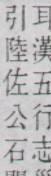 耳漢五行志
引陸佐公石